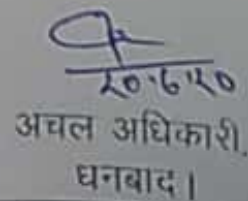 २०.6.२०
अचल अधिकारी.
धनबाद।